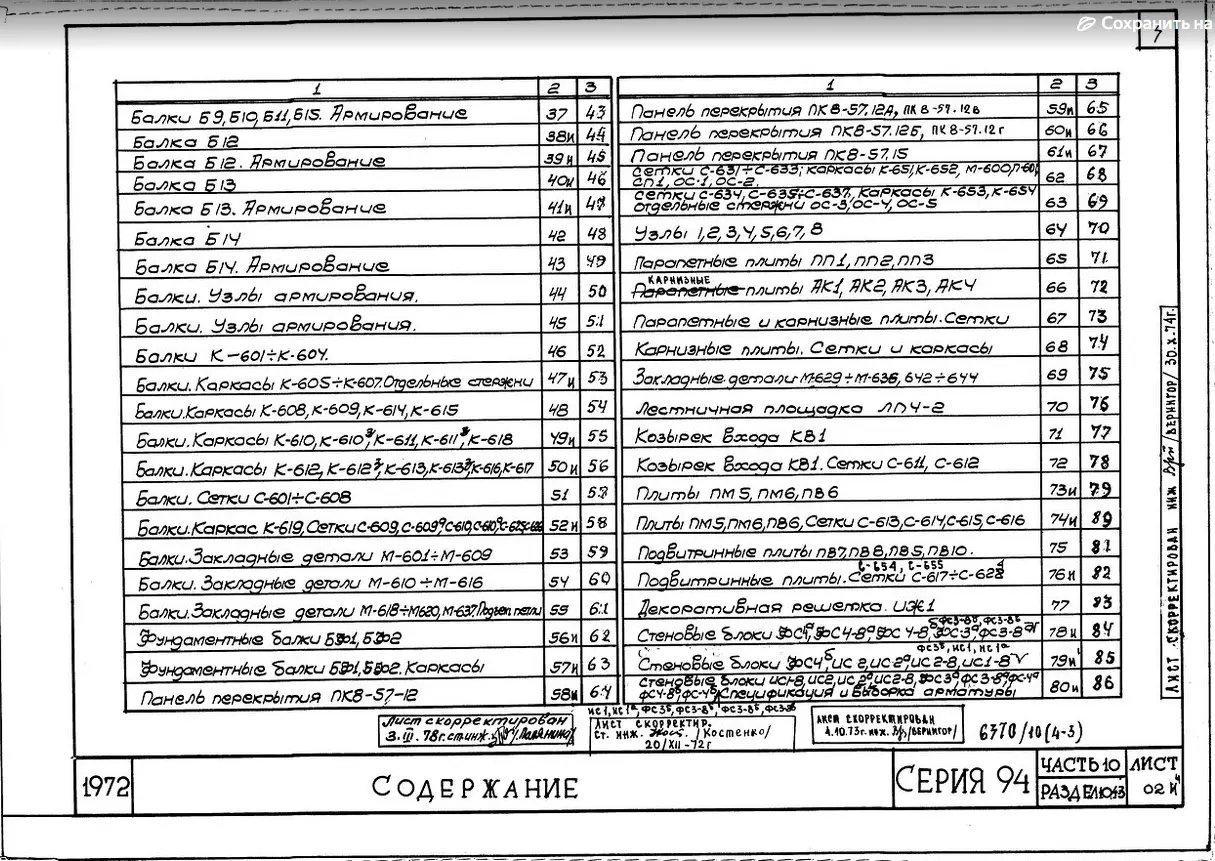 Сохранить на
3
1 2 3
Балки Б9, Б10, Б11, Б15. Армирование 37 43
Балка Б12 38и 44
Балка Б12. Армирование 39и 45
Балка Б13 40и 46
Балка Б13. Армирование 41и 47
Балка Б14 42 48
Балка Б14. Армирование 43 49
Балки. Узлы армирования. 44 50
Балки. Узлы армирования. 45 51
Балки К-601÷К-604. 46 52
Балки. Каркасы К-605÷К-607. Отдельные стержни 47и 53
Балки. Каркасы К-608, К-609, К-614, К-615 48 54
Балки. Каркасы К-610, К-610з, К-611, К-611з, К-618 49и 55
Балки. Каркасы К-612, К-612з, К-613, К-613з, К-616, К-617 50и 56
Балки. Сетки С-601÷С-608 51 57
Балки. Каркас К-619, Сетки С-609, С-609а, С-610, С-610а, 52и 58
Балки. Закладные детали М-601÷М-609 53 59
Балки. Закладные детали М-610÷М-616 54 60
Балки. Закладные детали М-618÷М620, М-637. Подъем. петли 55 61
Фундаментные балки 56и 62
Фундаментные балки Каркасы 57и 63
Панель перекрытия ПК8-57-12 58и 64
1 2 3
Панель перекрытия ПК8-57.12А, ПК8-57.12в 59и 65
Панель перекрытия ПК8-57.12Б, ПК8-57.12г 60и 66
Панель перекрытия ПК8-57.15 61и 67
Сетки С-631÷С-633; каркасы К-651, К-652, М-600, П-60,
СП1, ОС-1, ОС-2. 62 68
Сетки С-634, С-635÷С-637, Каркасы К-653, К-654
Отдельные стержни ОС-3, ОС-4, ОС-5 63 69
Узлы 1,2,3,4,5,6,7,8 64 70
Парапетные плиты ПП1, ПП2, ПП3 65 71
Карнизные
Парапетные плиты АК1, АК2, АК3, АК4 66 72
Парапетные и карнизные плиты. Сетки 67 73
Карнизные плиты. Сетки и каркасы 68 74
Закладные детали М-629÷М-636, 642÷644 69 75
Лестничная площадка ЛП4-2 70 76
Козырек входа КВ1 71 77
Козырек входа КВ1. Сетки С-611, С-612 72 78
Плиты ПМ5, ПМ6, ПВ6 73и 79
Плиты ПМ5, ПМ6, ПВ6, Сетки С-613, С-614, С-615, С-616 74и 80
Подвитринные плиты ПВ7, ПВ8, ПВ9, ПВ10. 75 81
С-654, С-655
Подвитринные плиты. Сетки С-617÷С-628 76и 82
Декоративная решетка ИЖ1 77 83
Стеновые блоки 78и 84
ФС3б, ИС1, ИС1а
Стеновые блоки 79и 85
Стеновые блоки
Спецификация и выборка арматуры 80и 86
ИС1, ИС1а, ФС3б, ФС3-8б, ФС3-8б, ФС3-8в
Лист скорректирован
3.III.78г. ст. инж.
Лист скорректир.
ст. инж. /Костенко/
20/XII-72г
Лист скорректирован
4.10.73г. инж. /Вернигор/
6370/10(4-3)
Лист скорректирован инж /Вернигор/ 30.X.74г.
1972
Содержание
Серия 94
Часть 10
Раздел 10.1-3
Лист
02и